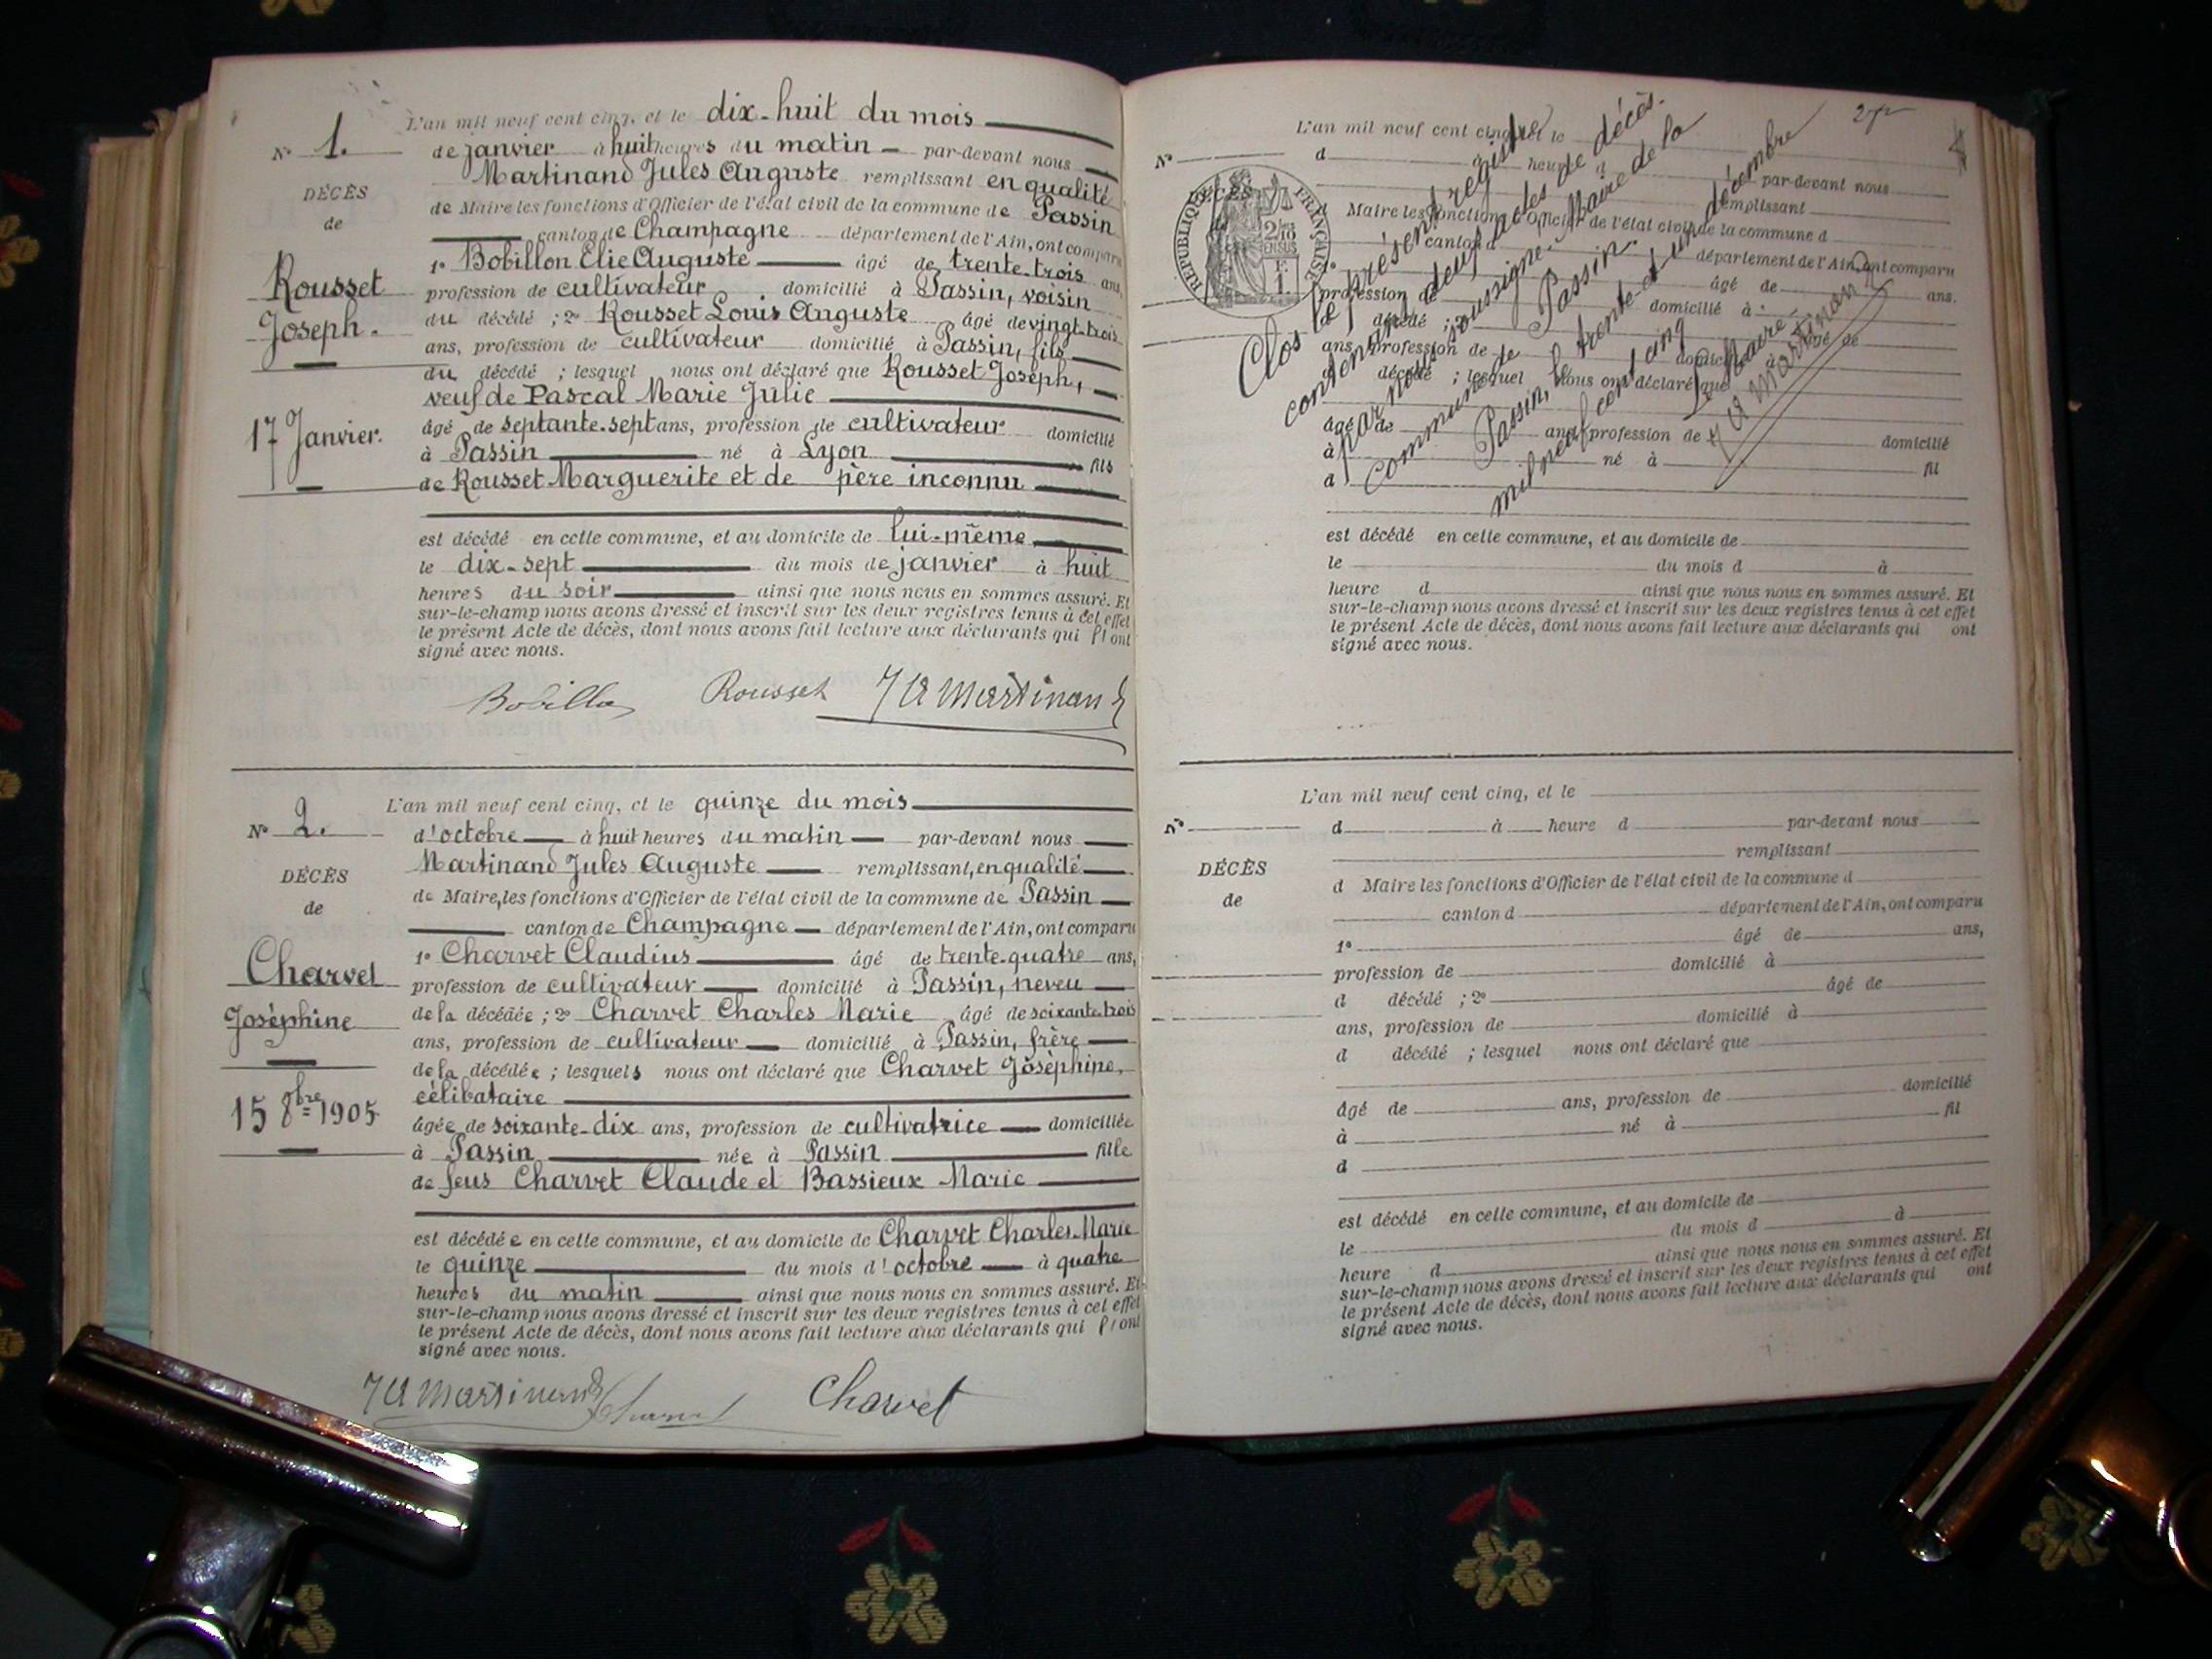 L'an mil neuf cent cinq, et le dix-huit du mois
N° 1. de janvier à huit heures du matin par-devant nous
Martinand Jules Auguste remplissant en qualité
DÉCÈS
de Maire les fonctions d'Officier de l'état civil de la commune de Passin
de
canton de Champagne département de l'Ain, ont comparu
1° Bobillon Elie Auguste âgé de trente-trois ans,
Rousset
profession de cultivateur domicilié à Passin, voisin
Joseph.
du décédé ; 2° Rousset Louis Auguste âgé de vingt-trois
ans, profession de cultivateur domicilié à Passin, fils
du décédé ; lesquel nous ont déclaré que Rousset Joseph,
veuf de Pascal Marie Julie
17 Janvier.
âgé de septante-sept ans, profession de cultivateur domicilié
à Passin né à Lyon fils
de Rousset Marguerite et de père inconnu
est décédé en cette commune, et au domicile de lui-même
le dix-sept du mois de janvier à huit
heures du soir ainsi que nous nous en sommes assuré. Et
sur-le-champ nous avons dressé et inscrit sur les deux registres tenus à cet effet
le présent Acte de décès, dont nous avons fait lecture aux déclarants qui l'ont
signé avec nous.
Bobillon Rousset J A Martinand
L'an mil neuf cent cinq, et le quinze du mois
N° 2. d'octobre à huit heures du matin par-devant nous
Martinand Jules Auguste remplissant, en qualité
DÉCÈS
de Maire, les fonctions d'Officier de l'état civil de la commune de Passin
de
canton de Champagne département de l'Ain, ont comparu
1° Charvet Claudius âgé de trente-quatre ans,
Charvet
profession de cultivateur domicilié à Passin, neveu
Joséphine
de la décédée ; 2° Charvet Charles Marie âgé de soixante-trois
ans, profession de cultivateur domicilié à Passin, frère
de la décédée ; lesquels nous ont déclaré que Charvet Joséphine,
célibataire
15 8bre 1905
âgée de soixante-dix ans, profession de cultivatrice domiciliée
à Passin née à Passin fille
de feus Charvet Claude et Bassieux Marie
est décédée en cette commune, et au domicile de Charvet Charles-Marie
le quinze du mois d'octobre à quatre
heures du matin ainsi que nous nous en sommes assuré. Et
sur-le-champ nous avons dressé et inscrit sur les deux registres tenus à cet effet
le présent Acte de décès, dont nous avons fait lecture aux déclarants qui l'ont
signé avec nous.
J A Martinand Charvet Charvet
L'an mil neuf cent cinq, et le
N° d à heure d par-devant nous
remplissant
DÉCÈS
RÉPUBLIQUE FRANÇAISE
2/10 EN SUS
1 F.
d Maire les fonctions d'Officier de l'état civil de la commune d
canton d département de l'Ain, ont comparu
1° âgé de ans.
profession de domicilié à
d décédé ; 2° âgé de
ans, profession de domicilié à
d décédé ; lesquel nous ont déclaré que
âgé de ans, profession de domicilié
à né à fil
d
Clos le présent registre
contenant deux actes de décès.
par nous soussigné Maire de la
commune de Passin.
Passin, le trente-et-un décembre
mil neuf cent cinq
Le Maire,
J A Martinand
est décédé en cette commune, et au domicile de
le du mois d à
heure d ainsi que nous nous en sommes assuré. Et
sur-le-champ nous avons dressé et inscrit sur les deux registres tenus à cet effet
le présent Acte de décès, dont nous avons fait lecture aux déclarants qui ont
signé avec nous.
L'an mil neuf cent cinq, et le
N° d à heure d par-devant nous
remplissant
DÉCÈS
d Maire les fonctions d'Officier de l'état civil de la commune d
de
canton d département de l'Ain, ont comparu
1° âgé de ans,
profession de domicilié à
d décédé ; 2° âgé de
ans, profession de domicilié à
d décédé ; lesquel nous ont déclaré que
âgé de ans, profession de domicilié
à né à fil
d
est décédé en cette commune, et au domicile de
le du mois d à
heure d ainsi que nous nous en sommes assuré. Et
sur-le-champ nous avons dressé et inscrit sur les deux registres tenus à cet effet
le présent Acte de décès, dont nous avons fait lecture aux déclarants qui ont
signé avec nous.